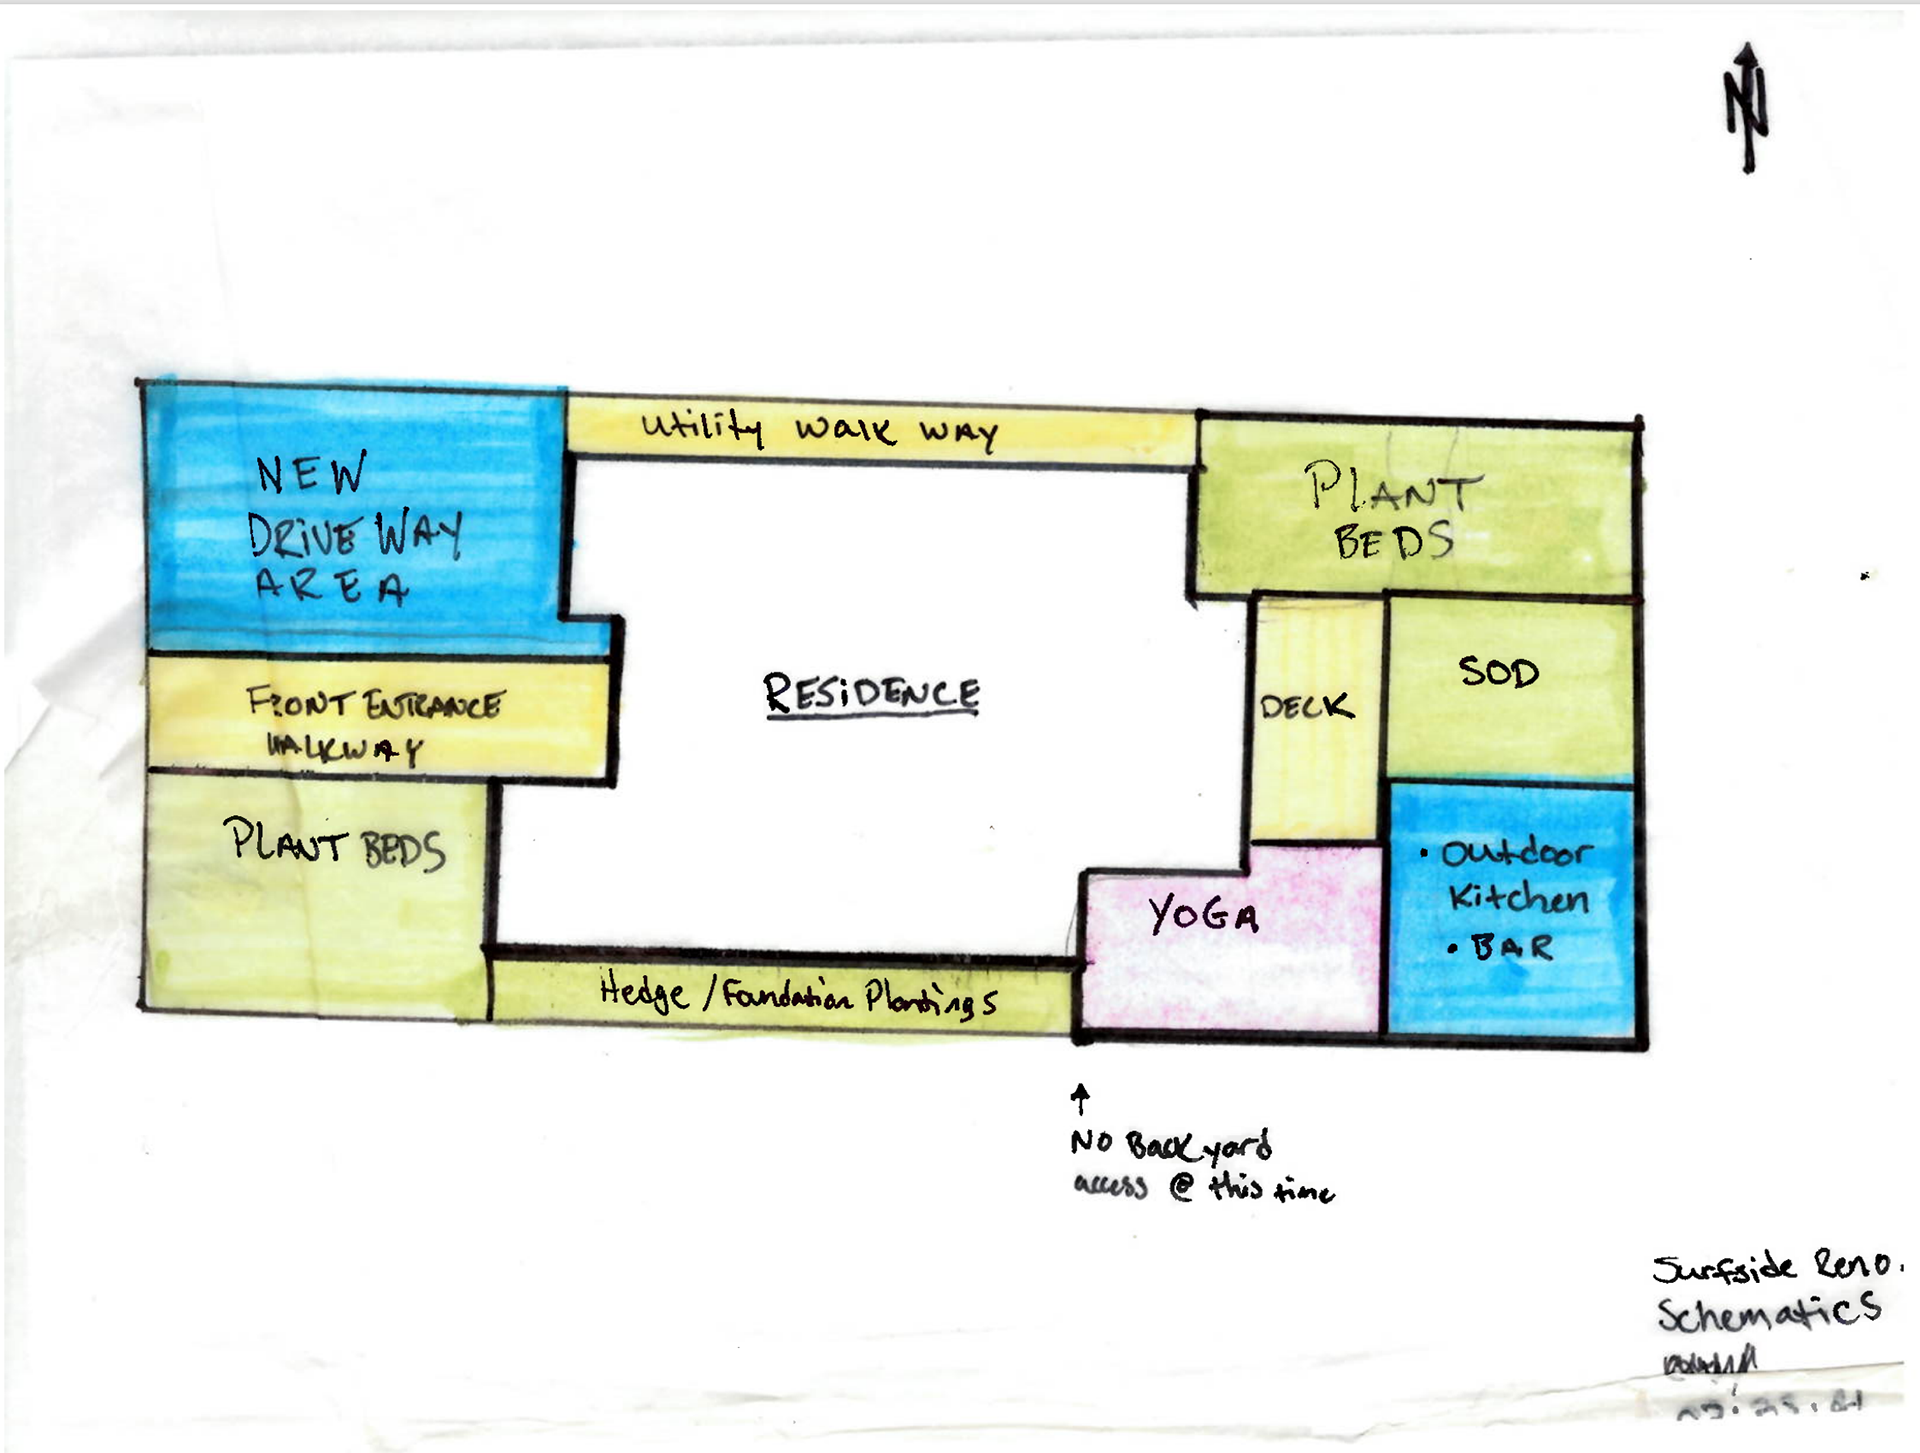 N
Utility Walk Way
NEW
DRIVE WAY
AREA
PLANT
BEDS
FRONT ENTRANCE
WALKWAY
RESIDENCE
DECK
SOD
PLANT BEDS
• Outdoor
Kitchen
• BAR
YOGA
Hedge / Foundation Plantings
NO Back yard
access @ this time
Surfside Reno.
Schematics